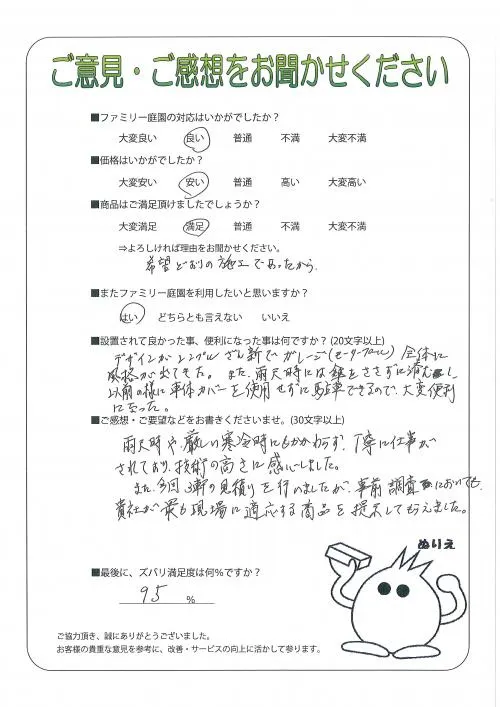 ご意見・ご感想をお聞かせください
■ファミリー庭園の対応はいかがでしたか？
大変良い 良い 普通 不満 大変不満
■価格はいかがでしたか？
大変安い 安い 普通 高い 大変高い
■商品はご満足頂けましたでしょうか？
大変満足 満足 普通 不満 大変不満
⇒よろしければ理由をお聞かせください。
希望どおりの施工であったから.
■またファミリー庭園を利用したいと思いますか？
はい どちらとも言えない いいえ
■設置されて良かった事、便利になった事は何ですか？(20文字以上)
デザインがシンプルで斬新でガレージ 全体に
風格が出てきた。また、雨天時には傘をささずに済むし
以前の様に車体カバーを使用せずに駐車できるので、大変便利
になった。
■ご感想・ご要望などをお書きくださいませ。(30文字以上)
雨天時や、厳しい寒冷時にもかかわらず、丁寧に仕事が
されており、技術の高さに感心しました。
また、今回3軒の見積りを行いましたが、事前調査においても、
貴社が最も現場に適応する商品を提示してもらえました。
ぬりえ
■最後に、ズバリ満足度は何％ですか？
95 %
ご協力頂き、誠にありがとうございました。
お客様の貴重な意見を参考に、改善・サービスの向上に活かして参ります。